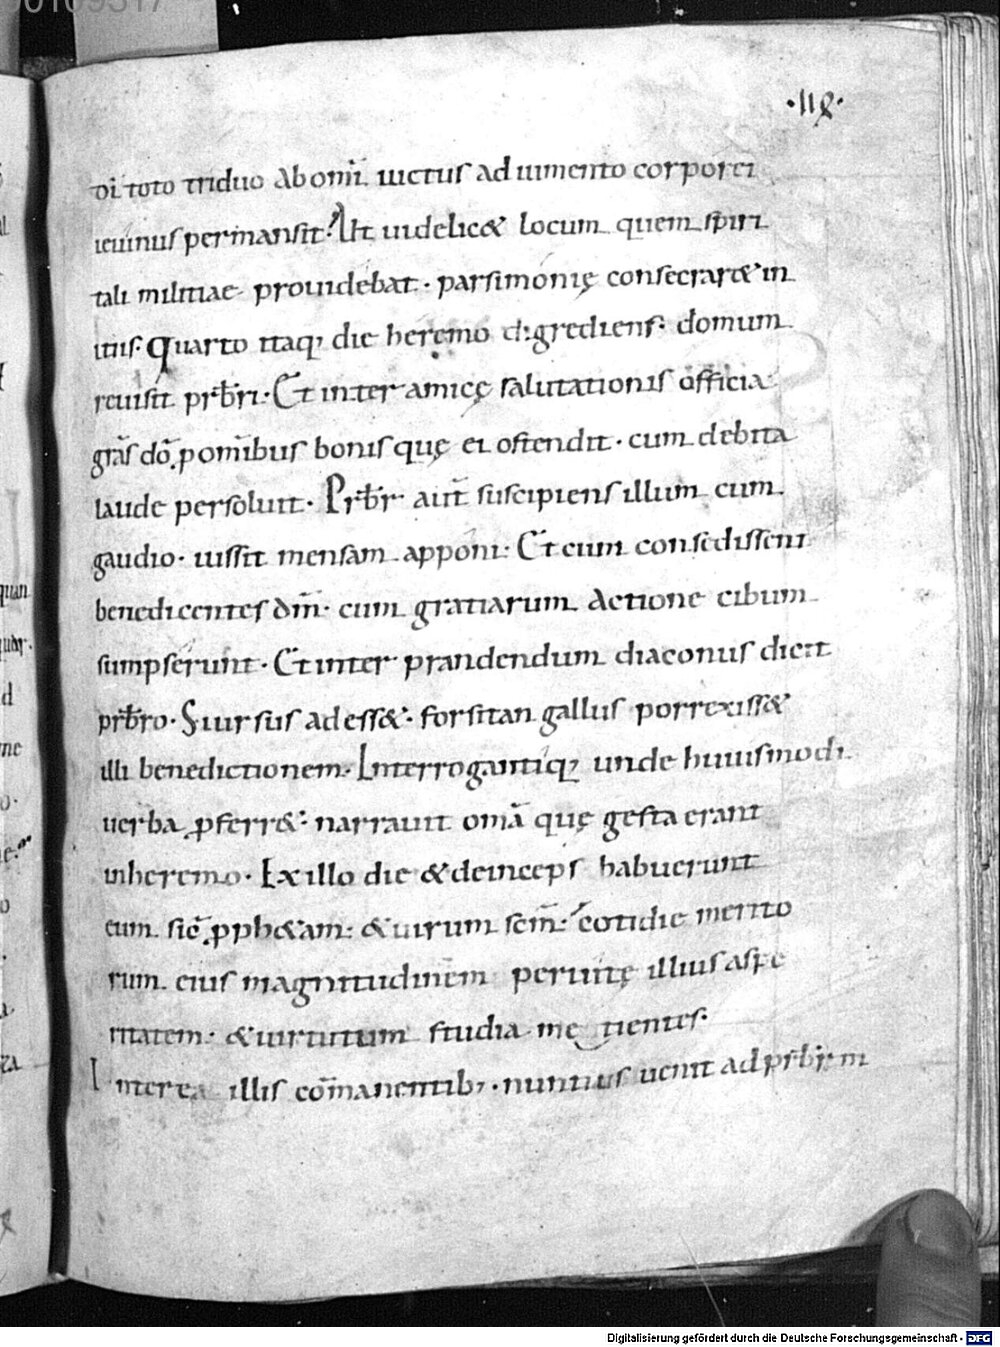 ·118·
di toto triduo ab om̄i uictus adiumento corporei
ieiunus permansit. Ut uidelic& locum quem spiri
tali militiae prouidebat · parsimonię consecrar& in
itiis. Quarto itaq; die heremo digrediens · domum
reuisit pr̄br̄i · Et inter amicę salutationis officia
grās dō p om̄ibus bonis quę ei ostendit · cum debita
laude persoluit · Pr̄br̄ aut̄ suscipiens illum cum
gaudio · iussit mensam apponi · Et cum consedissent
benedicentes dm̄ · cum gratiarum actione cibum
sumpserunt · Et inter prandendum diaconus dicit
pr̄br̄o · Si ursus adess& · forsitan gallus porrexiss&
illi benedictionem · Interrogantiq; unde huiusmodi
uerba pferr& · narrauit omā quę gesta erant
in heremo · Ex illo die & deinceps habuerunt
eum sic̄ pph&am · & uirum scm̄ · cotidie merito
rum eius magnitudinem per uitę illius aspe
ritatem · & uirtutum studia metientes ·
Interea illis cōmanentib; · nuntius uenit ad pr̄br̄m
quam
d
ne
Digitalisierung gefördert durch die Deutsche Forschungsgemeinschaft - DFG